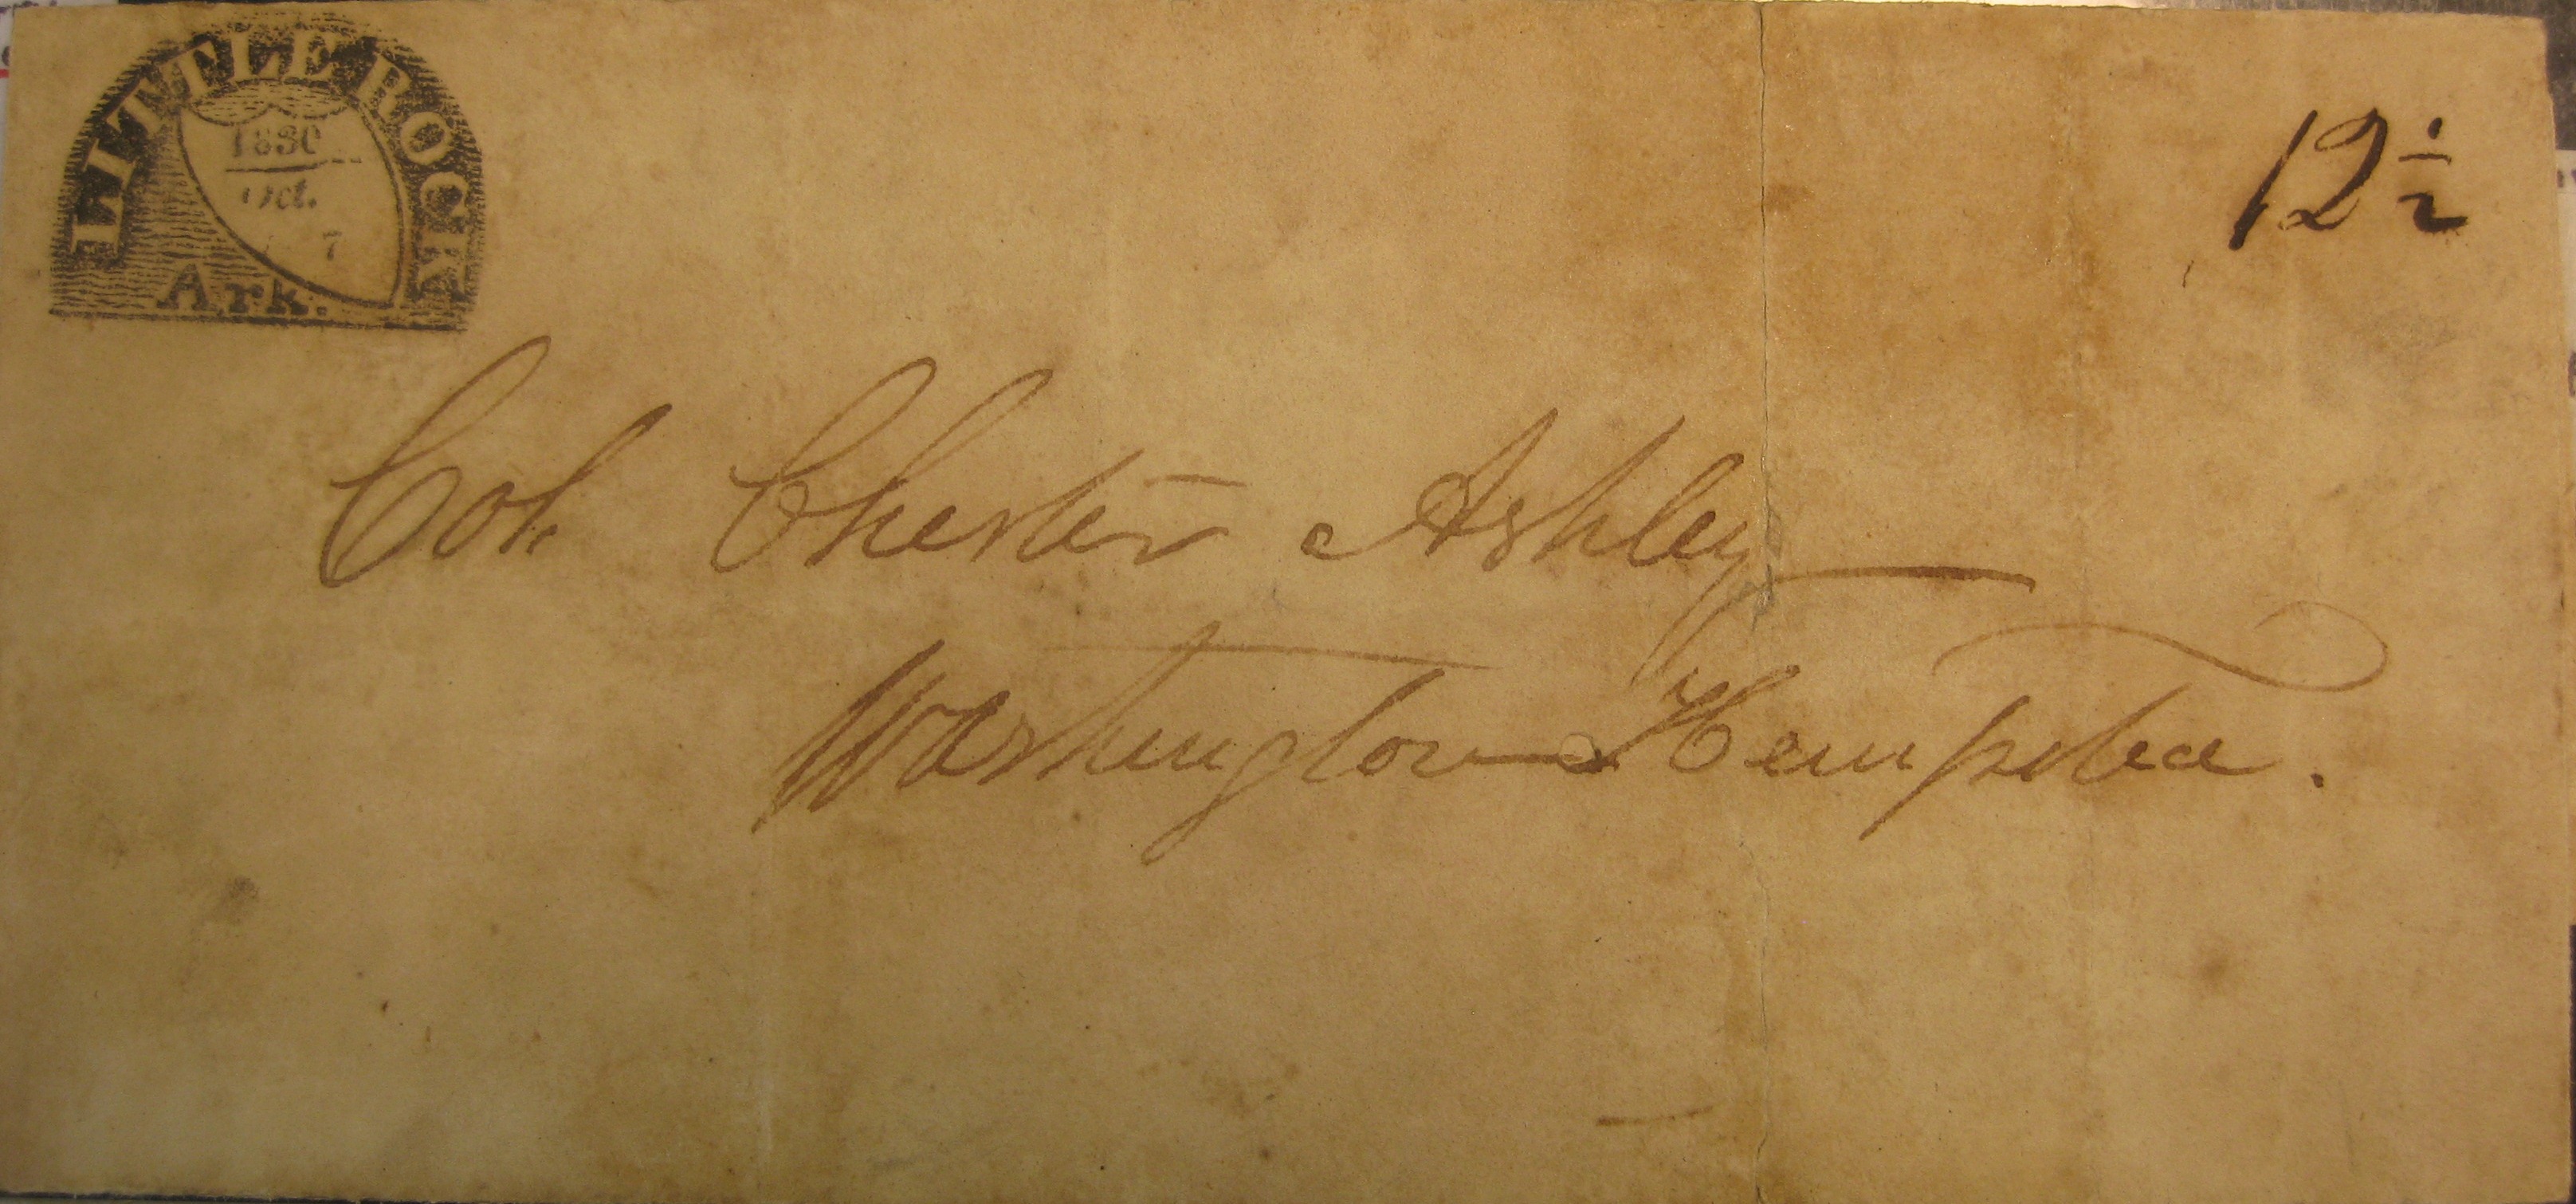 LITTLE ROCK
1830
Oct.
7
Ark.
12 1/2
Col. Chester Ashley
Washington Hempstead.